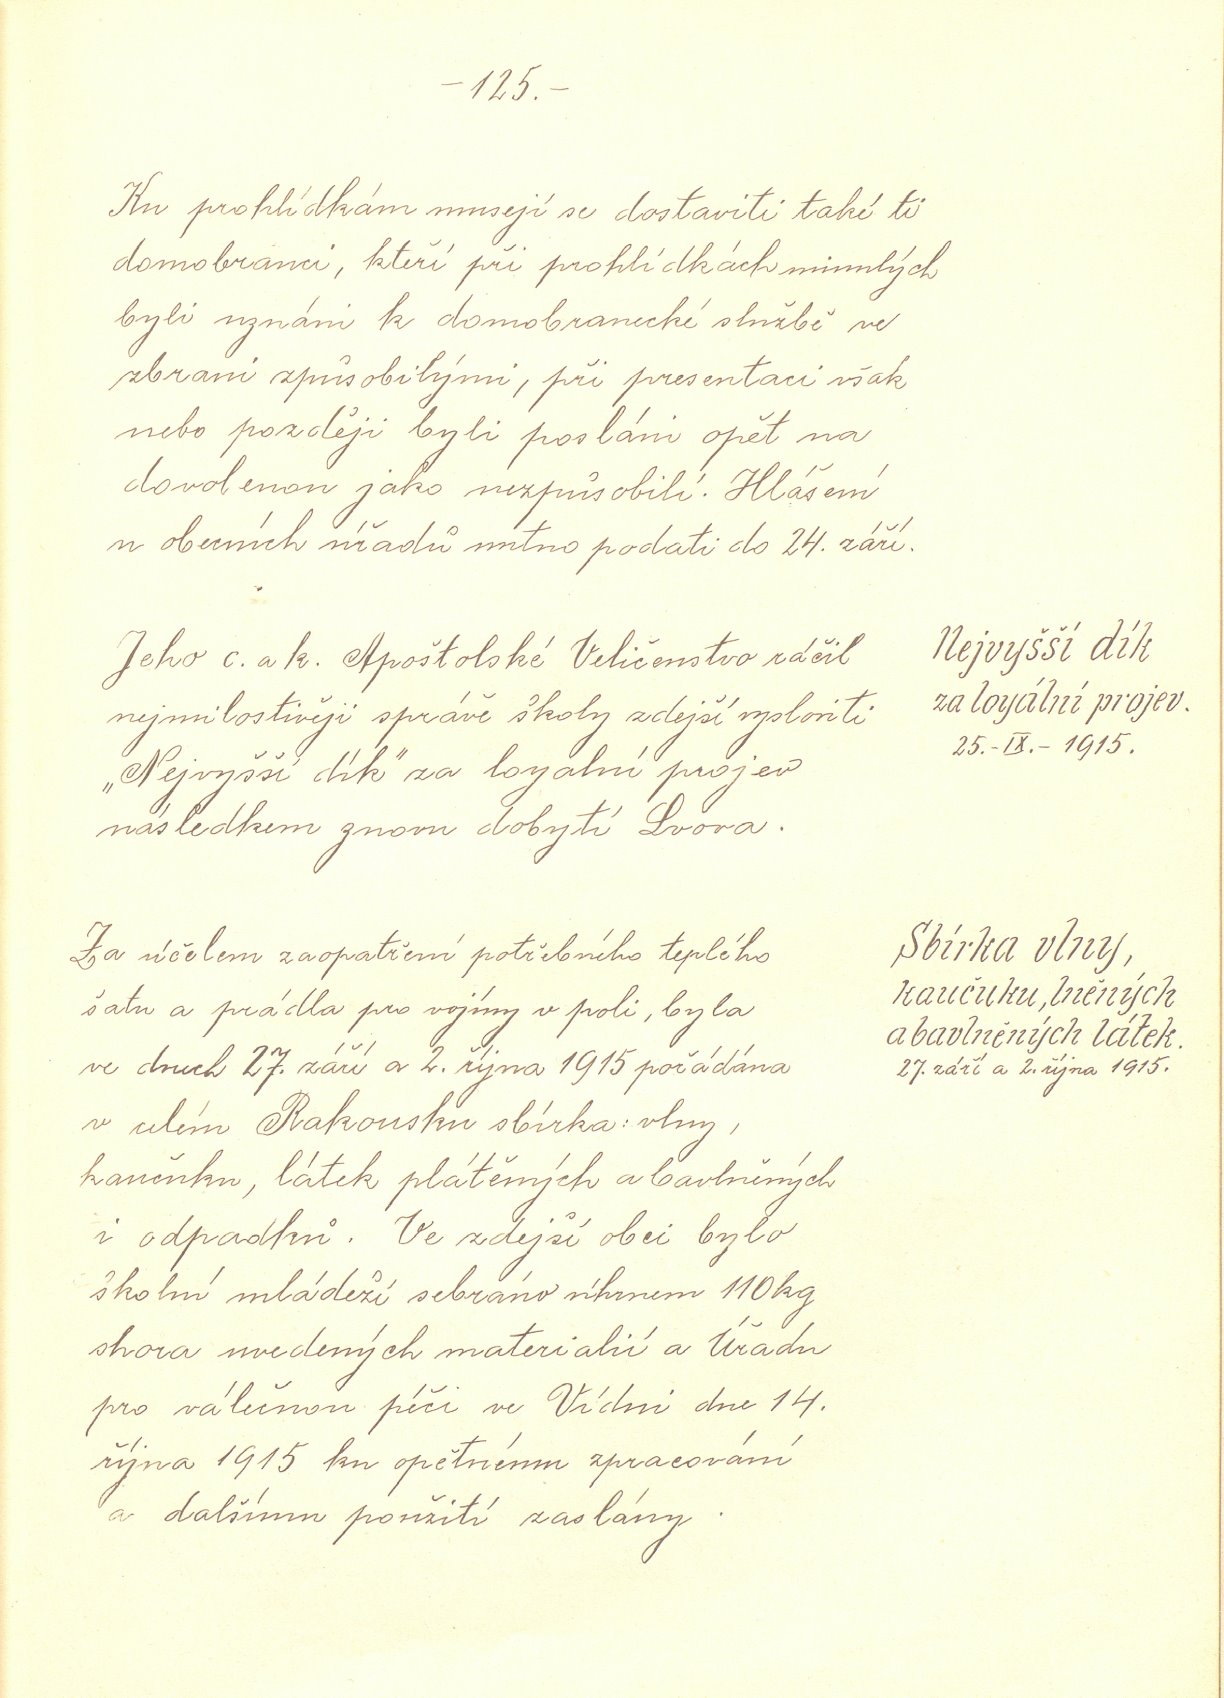 – 125. –
Ku prohlídkám musejí se dostaviti také ti
domobranci, kteří při prohlídkách minulých
byli uznáni k domobranecké službě ve
zbrani způsobilými, při presentaci však
nebo později byli posláni opět na
dovolenou jako nezpůsobilí. Hlášení
u obecních úřadů nutno podati do 24. září.
Jeho c. a k. Apoštolské Veličenstvo ráčil
nejmilostivěji správě školy zdejší vysloviti
„Nejvyšší dík" za loyalní projev
následkem znovu dobytí Lvova.
Nejvyšší dík
za loyální projev.
25.-IX.- 1915.
Za účelem zaopatření potřebného teplého
šatu a prádla pro vojíny v poli, byla
ve dnech 27. září a 2. října 1915 pořádána
v celém Rakousku sbírka: vlny,
kaučuku, látek plátěných a bavlněných
i odpadků. Ve zdejší obci bylo
školní mládeží sebráno úhrnem 110 kg
shora uvedených materialií a Úřadu
pro válečnou péči ve Vídni dne 14.
října 1915 ku opětnému zpracování
a dalšímu použití zaslány.
Sbírka vlny,
kaučuku, lněných
a bavlněných látek.
27. září a 2. října 1915.